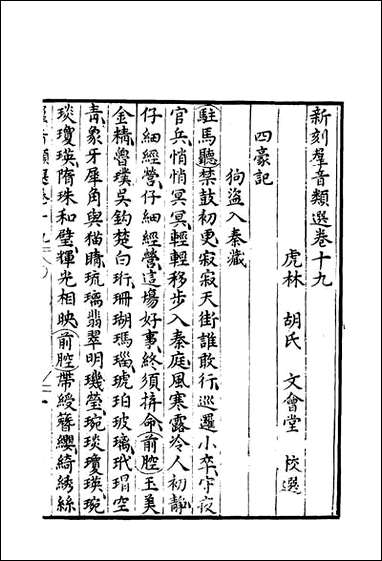 新刻羣音類選卷十九
虎林 胡氏 文會堂 校選
四豪記
狗盜入秦藏
駐馬聽禁鼓初更寂寂天街誰敢行巡邏小卒守夜
官兵悄悄冥冥輕輕移步入秦庭風寒露冷人初靜
仔細經營仔細經營這場好事終須拚命前腔玉美
金精魯璞吳鈎楚白珩珊瑚瑪瑙琥珀玻璃玳瑁空
青象牙犀角與猫睛琉璃翡翠明璣瑩琬琰瓊瑛琬
琰瓊瑛隋珠和璧輝光相映前腔帶綬簪纓綺綉絲